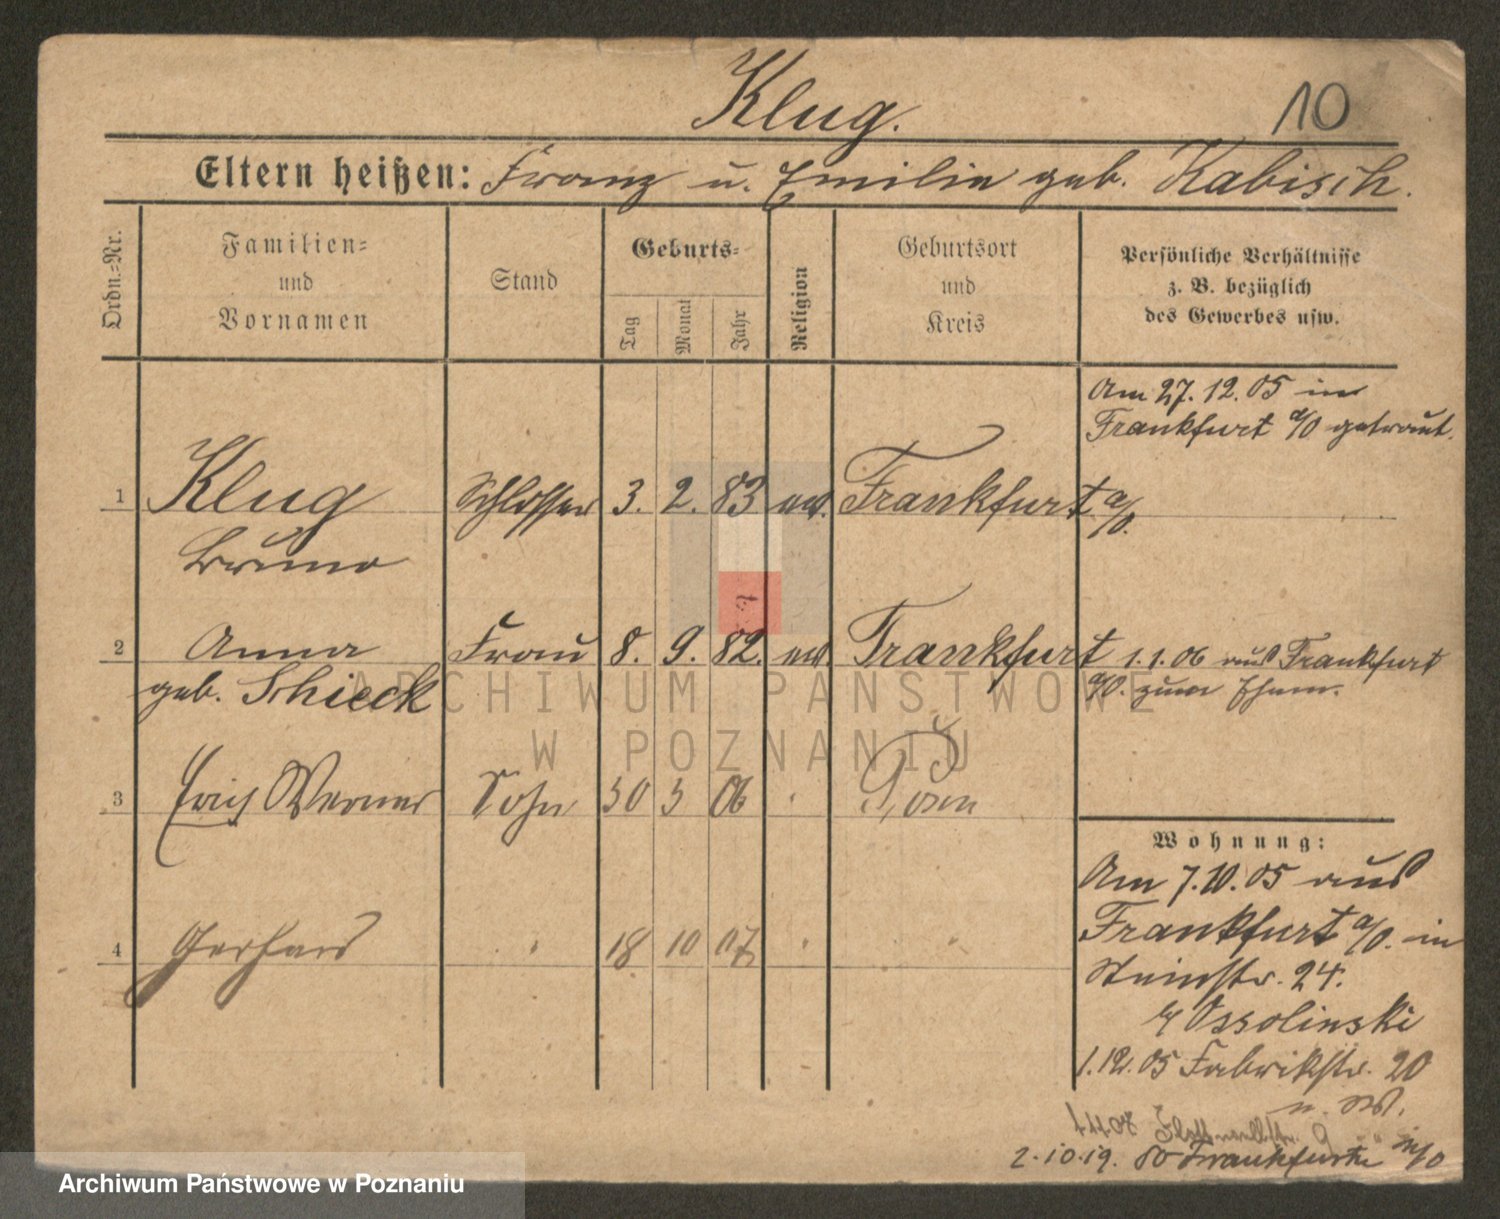 Klug. 10
Eltern heißen: Franz u. Emilie geb. Kabisch.
Ordn.-Nr.
Familien-
und
Vornamen
Stand
Geburts-
Tag
Monat
Jahr
Religion
Geburtsort
und
Kreis
Persönliche Verhältnisse
z. B. bezüglich
des Gewerbes usw.
Am 27. 12. 05 in
Frankfurt a/O getraut.
1 Klug Schlosser 3. 2. 83 ev. Frankfurt a/O.
Bruno
2 Anna Frau 8. 9. 82. ev. Frankfurt 1.1.06 aus Frankfurt
geb. Schieck a/O. zum Ehem.
3 Erich Werner Sohn 30 3 06 " Posen
4 Gerhard " 18 10 07 " "
Wohnung:
Am 7.10.05 aus
Frankfurt a/O. in
Steinstr. 24.
b/ Ossolinski
1.12.05 Fabrikstr. 20
2.10.19. Frankfurt a/O
ARCHIWUM PAŃSTWOWE
W POZNANIU
Archiwum Państwowe w Poznaniu